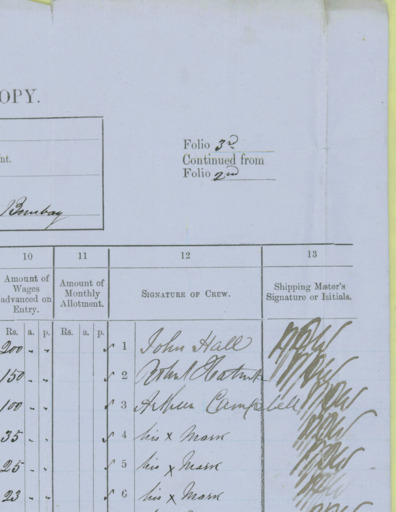 OPY.
Folio 3rd
Continued from
Folio 2nd
nt.
Bombay
10 11 12 13
Amount of Wages advanced on Entry.
Amount of Monthly Allotment.
Signature of Crew.
Shipping Master's Signature or Initials.
Rs. a. p. Rs. a. p.
200 " " 1 John Hall
150 " " 2
100 " " 3 Arthur Campbell
35 " " 4 his x Mark
25 " " 5 his x Mark
23 " " 6 his x Mark